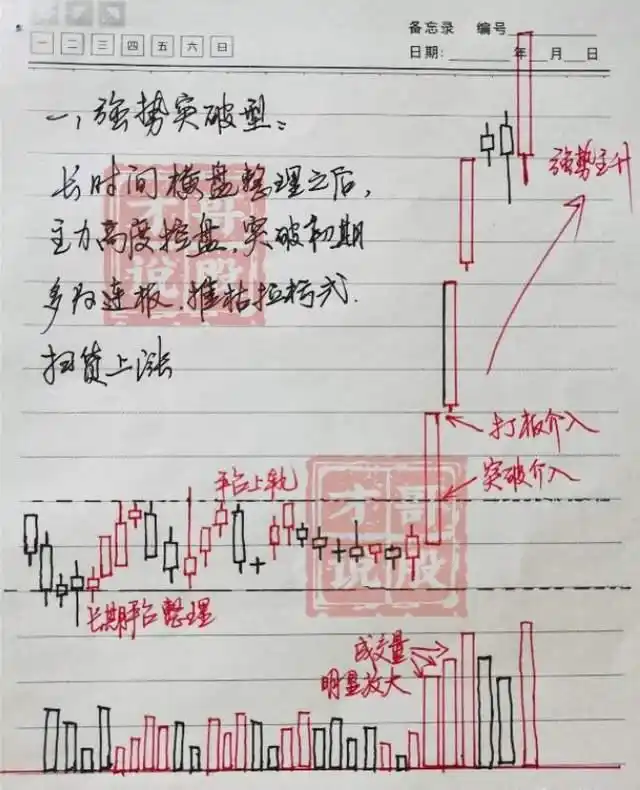 备忘录 编号
一 二 三 四 五 六 日
日期: 年 月 日
一、强势突破型:
长时间横盘整理之后,
主力高度控盘.突破初期
多为连板.摧枯拉朽式.
扫货上涨
才哥
说股
强势主升
打板介入
突破介入
平台上轨
才哥
说股
长期平台整理
成交量
明显放大